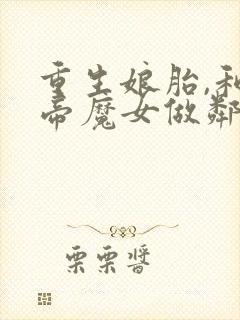 重生娘胎,和
帝魔女做鄰
栗栗醬